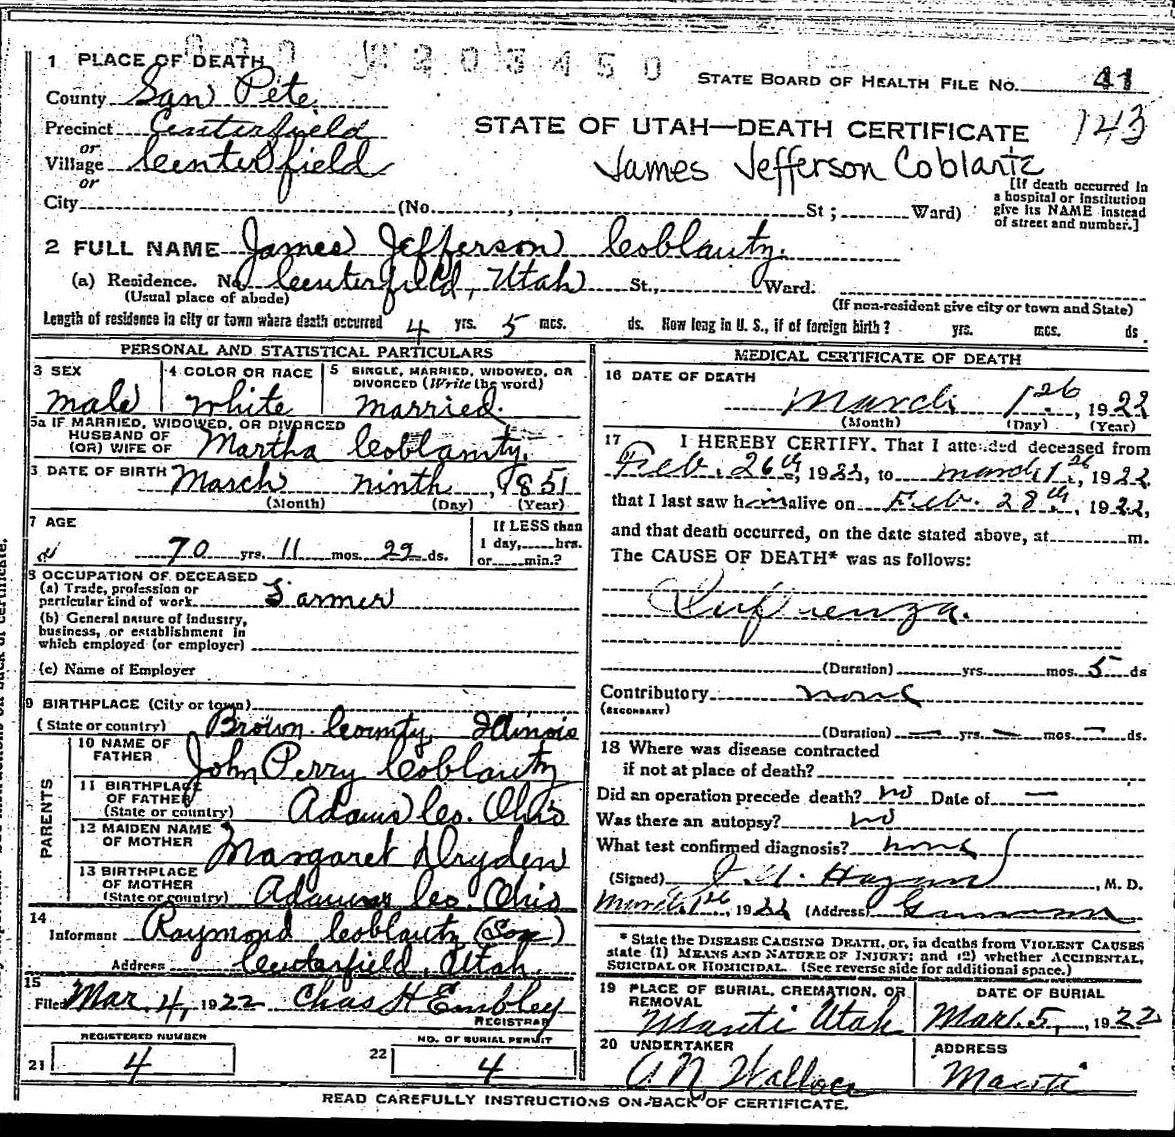 000 2203450
1 PLACE OF DEATH
STATE BOARD OF HEALTH FILE NO. 41
County San Pete
Precinct Centerfield
STATE OF UTAH—DEATH CERTIFICATE 143
or
Village Centerfield
James Jefferson Coblantz
or
City (No. , St; Ward)
[If death occurred in
a hospital or institution
give its NAME instead
of street and number.]
2 FULL NAME James Jefferson Coblantz.
(a) Residence. No. Centerfield, Utah St., Ward.
(Usual place of abode) (If non-resident give city or town and State)
Length of residence in city or town where death occurred 4 yrs. 5 mos. ds. How long in U. S., if of foreign birth? yrs. mos. ds.
PERSONAL AND STATISTICAL PARTICULARS
3 SEX
male
4 COLOR OR RACE
white
5 SINGLE, MARRIED, WIDOWED, OR
DIVORCED (Write the word)
married.
5a IF MARRIED, WIDOWED, OR DIVORCED
HUSBAND OF
(OR) WIFE OF Martha Coblantz.
DATE OF BIRTH March ninth, 1851
(Month) (Day) (Year)
7 AGE
70 yrs. 11 mos. 22 ds.
If LESS than
1 day, hrs.
or min.?
8 OCCUPATION OF DECEASED
(a) Trade, profession or
particular kind of work Farmer
(b) General nature of industry,
business, or establishment in
which employed (or employer)
(c) Name of Employer
9 BIRTHPLACE (City or town)
(State or country) Brown County, Illinois
PARENTS
10 NAME OF
FATHER John Perry Coblantz
11 BIRTHPLACE
OF FATHER
(State or country) Adams Co. Ohio
12 MAIDEN NAME
OF MOTHER Margaret Dryden
13 BIRTHPLACE
OF MOTHER
(State or country) Adams Co. Ohio
14
Informant Raymond Coblantz (Son)
Address Centerfield, Utah.
15
Filed Mar. 4, 1922 Chas H Embley
REGISTRAR
REGISTERED NUMBER
21 4
NO. OF BURIAL PERMIT
22 4
MEDICAL CERTIFICATE OF DEATH
16 DATE OF DEATH
March 1st, 1922
(Month) (Day) (Year)
17 I HEREBY CERTIFY, That I attended deceased from
Feb. 26th, 1922, to March 1st, 1922
that I last saw him alive on Feb. 28th, 1922,
and that death occurred, on the date stated above, at m.
The CAUSE OF DEATH* was as follows:
Influenza.
(Duration) yrs. mos. 5 ds
Contributory none
(SECONDARY)
(Duration) — yrs. — mos. — ds.
18 Where was disease contracted
if not at place of death?
Did an operation precede death? no Date of —
Was there an autopsy? no
What test confirmed diagnosis? none
(Signed) Hagan, M. D.
March 1st, 1922 (Address) Gunnison
* State the DISEASE CAUSING DEATH, or, in deaths from VIOLENT CAUSES
state (1) MEANS AND NATURE OF INJURY; and (2) whether ACCIDENTAL,
SUICIDAL OR HOMICIDAL. (See reverse side for additional space.)
19 PLACE OF BURIAL, CREMATION, OR
REMOVAL
Manti Utah
DATE OF BURIAL
Mar. 5, 1922
20 UNDERTAKER
A N Wallace
ADDRESS
Manti
READ CAREFULLY INSTRUCTIONS ON BACK OF CERTIFICATE.